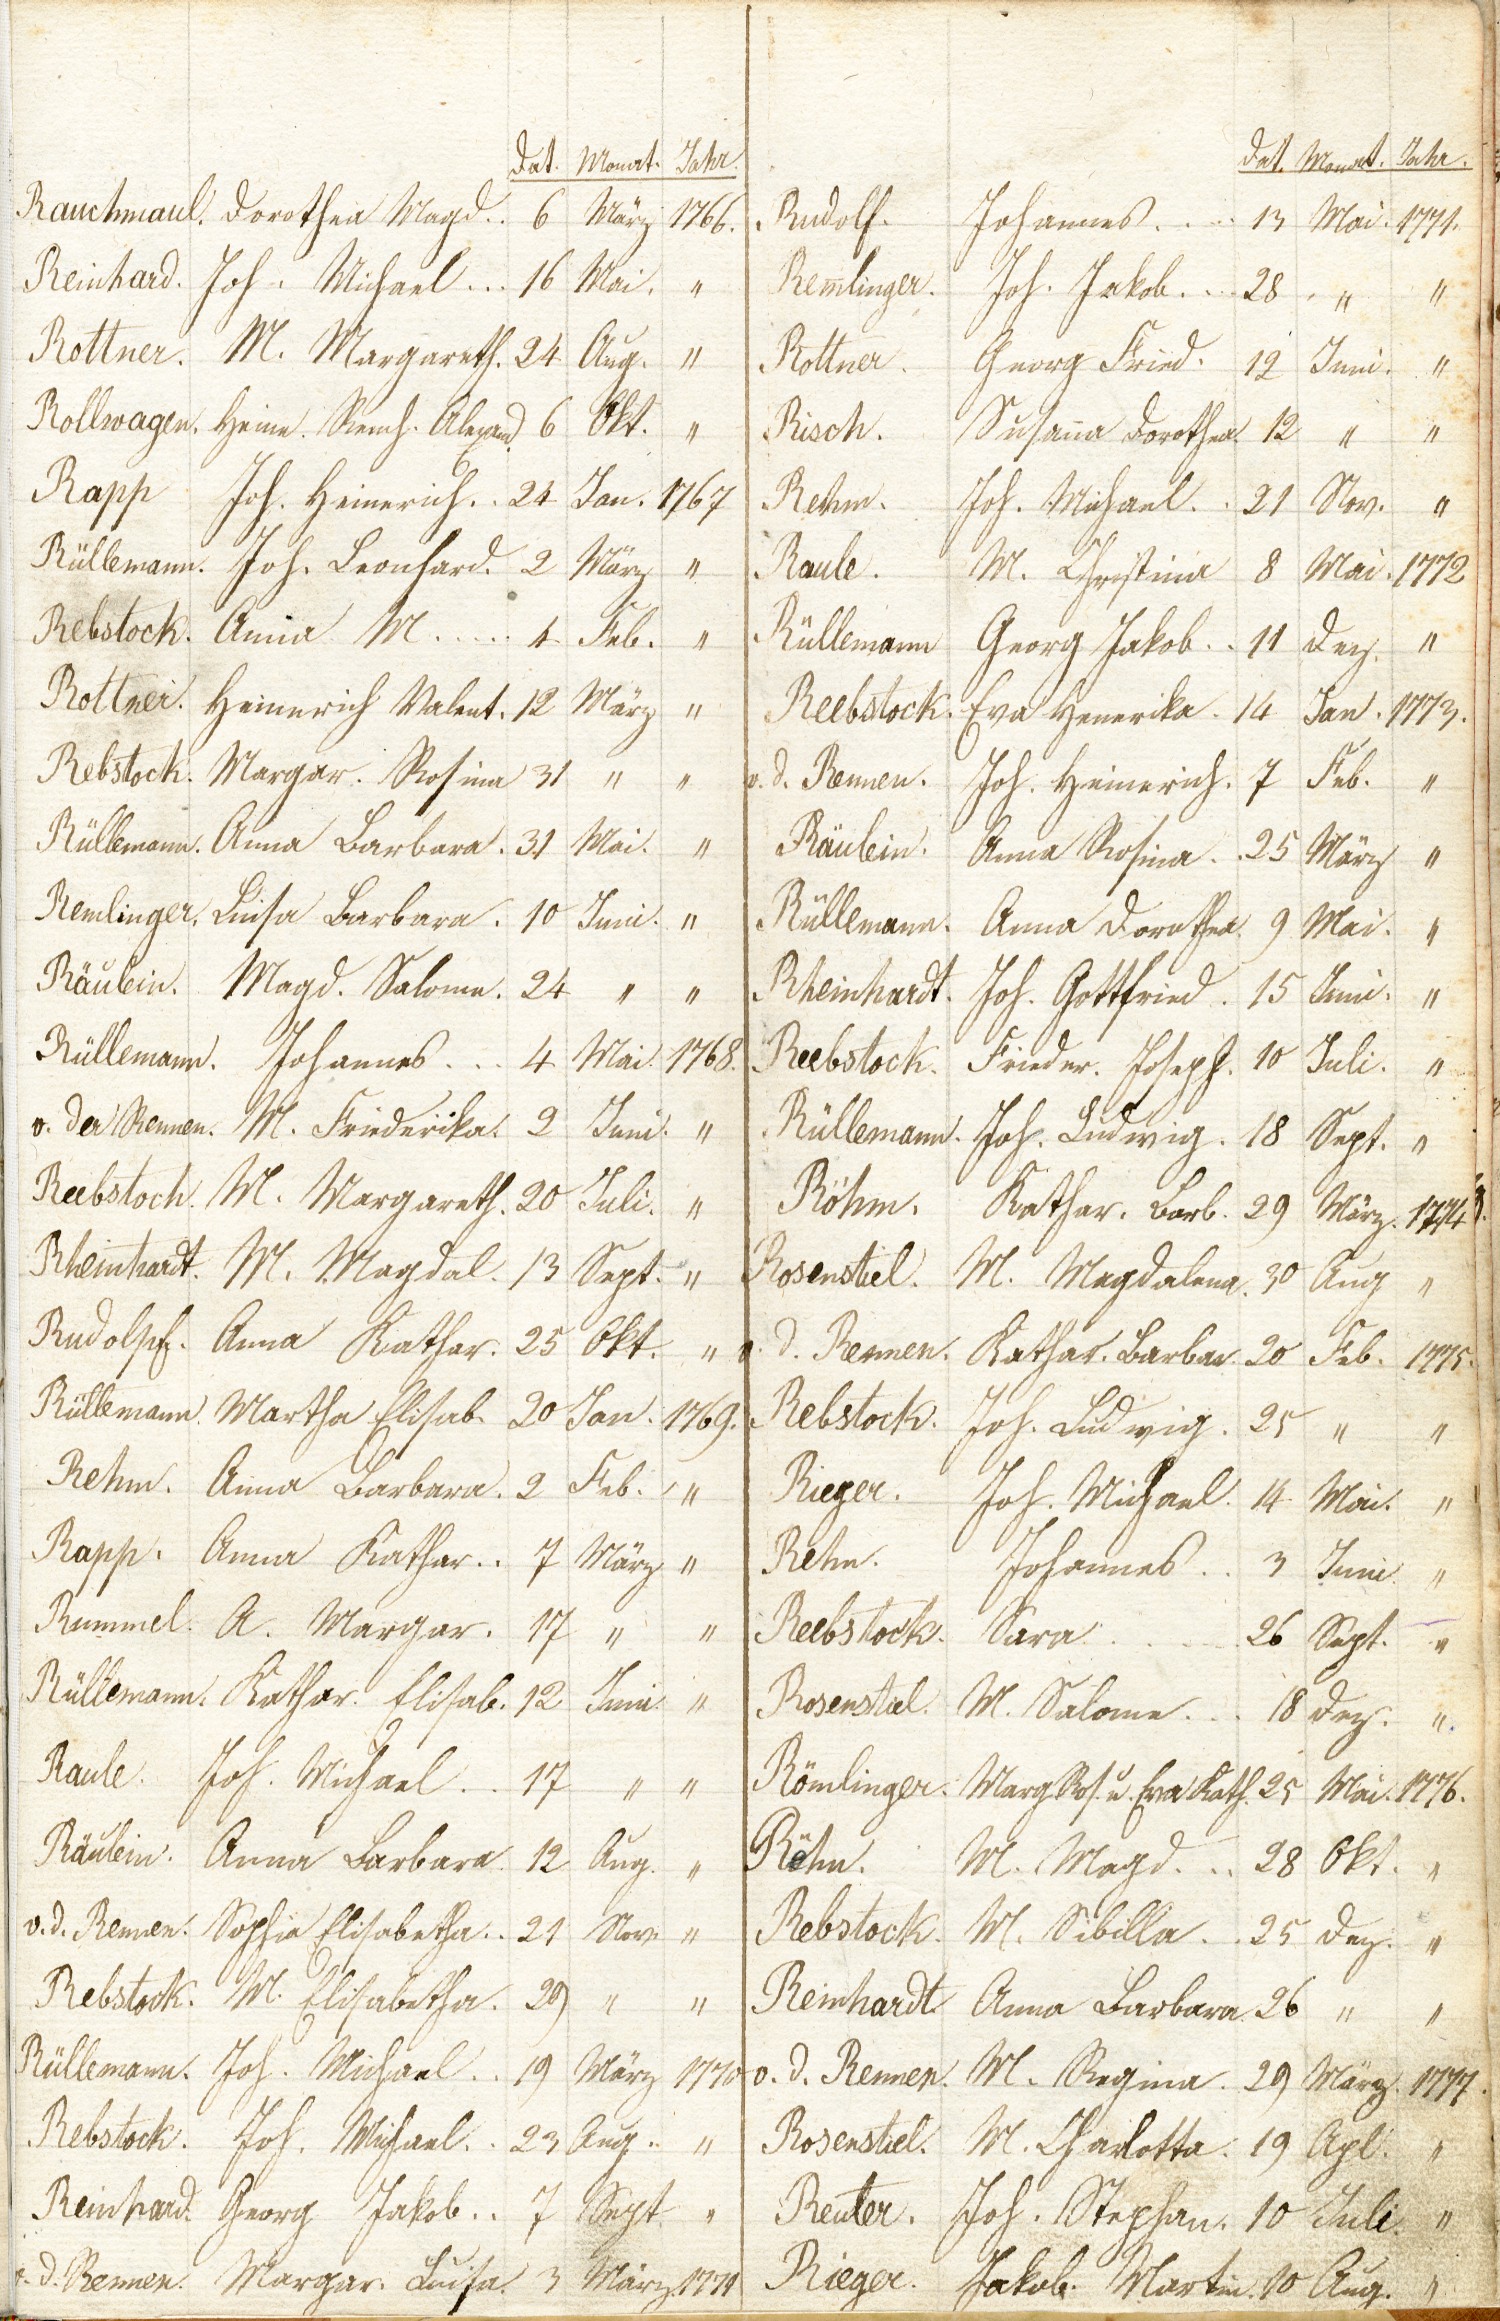 Dat. Monat. Jahr.
Rauchmaul. Dorothea Magd.. 6 März 1766.
Reinhard. Joh. Michael... 16 Mai. "
Rottner. M. Margareth. 24 Aug. "
Rollwagen. Heinr. Alexand. 6 Okt. "
Rapp Joh. Heinerich.. 24 Jan. 1767
Rüllemann. Joh. Leonhard. 2 März "
Rebstock. Anna M..... 4 Feb. "
Rottner. Heinerich Valent. 12 März "
Rebstock. Margar. Rosina 31 " "
Rüllemann. Anna Barbara. 31 Mai. "
Remlinger. Luisa Barbara. 10 Juni. "
Räulein. Magd. Salome. 24 " "
Rüllemann. Johannes... 4 Mai. 1768.
v. der Rennen. M. Friederika. 2 Juni. "
Reebstoch. M. Margareth. 20 Juli. "
Rheinhardt. M. Magdal. 13 Sept. "
Rudolpf. Anna Kathar. 25 Okt. "
Rüllemann. Martha Elisab. 20 Jan. 1769.
Rehm. Anna Barbara. 2 Feb. "
Rapp. Anna Kathar.. 7 März "
Rummel. A. Margar. 17 " "
Rüllemann. Kathar. Elisab. 12 Juni. "
Raule. Joh. Michael... 17 " "
Räulein. Anna Barbara. 12 Aug. "
v. d. Rennen. Sophia Elisabetha.. 21 Nov. "
Rebstock. M. Elisabetha. 29 " "
Rüllemann. Joh. Michael.. 19 März 1770
Rebstock. Joh. Michael.. 23 Aug. "
Reinhard. Georg Jakob.. 7 Sept. "
v. d. Rennen. Margar. Luisa. 3 März 1771
Dat. Monat. Jahr.
Rudolf. Johannes.... 13 Mai. 1771.
Remlinger. Joh. Jakob... 28 " "
Rottner. Georg Fried. 12 Juni. "
Risch. Susanna Dorothea. 12 " "
Rehm. Joh. Michael.. 21 Nov. "
Raule. M. Christina 8 Mai. 1772
Rüllemann Georg Jakob.. 11 Dez. "
Reebstock. Eva Henerika. 14 Jan. 1773.
v. d. Rennen. Joh. Heinerich. 7 Feb. "
Räulein. Anna Rosina.. 25 März "
Rüllemann. Anna Dorothea. 9 Mai. "
Rheinhardt. Joh. Gottfried. 15 Juni. "
Reebstock. Frieder. Joseph. 10 Juli. "
Rüllemann. Joh. Ludwig. 18 Sept. "
Röhm. Kathar. Barb. 29 März. 1774
Rosenstiel. M. Magdalena. 30 Aug "
v. d. Rennen. Kathar. Barbar. 20 Feb. 1775.
Rebstock. Joh. Ludwig. 25 " "
Rieger. Joh. Michael. 14 Mai. "
Rehm. Johannes.. 3 Juni "
Reebstock. Sara..... 26 Sept. "
Rosenstiel. M. Salome... 18 Dez. "
Römlinger. Marg Ros. u. Eva Kath. 25 Mai. 1776.
Röhm. M. Magd... 28 Okt. "
Rebstock. M. Sibilla.. 25 Dez. "
Reinhardt Anna Barbara. 26 " "
v. d. Rennen. M. Regina. 29 März. 1777.
Rosenstiel. M. Charlotta. 19 Apl. "
Reuter. Joh. Stephan. 10 Juli. "
Rieger. Jakob. Martin. 10 Aug. "